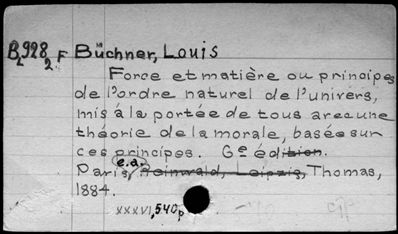 B2928 2 F Büchner, Louis
Force et matière ou principes
de l'ordre naturel de l'univers,
mis à la portée de tous avec une
théorie de la morale, basée sur
ces principes. 6e édition.
e.a.
Paris, Reinwald, Leipzig, Thomas,
1884.
XXXVI, 540p